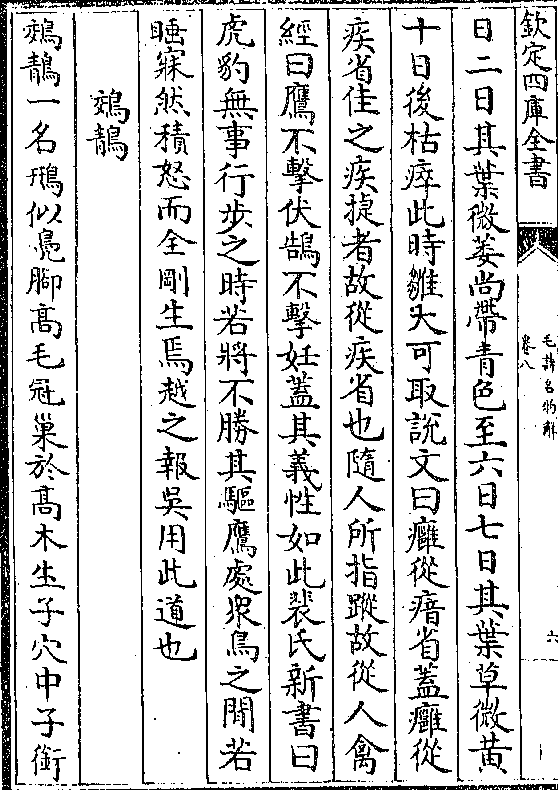 欽定四庫全書
毛詩名物解
卷八
六
日二日其葉微萎尚帶青色至六日七日其葉草微黄
十日後枯瘁此時雛大可取說文曰癰從瘖省蓋癰從
疾省隹之疾捷者故從疾省也隨人所指蹤故從人禽
經曰鷹不擊伏鶻不擊妊蓋其義性如此裴氏新書曰
虎豹無事行步之時若將不勝其驅鷹處衆鳥之間若
睡寐然積怒而全剛生焉越之報吳用此道也
鵁鶄
鵁鶄一名鳽似鳧脚髙毛冠巢於髙木生子穴中子銜